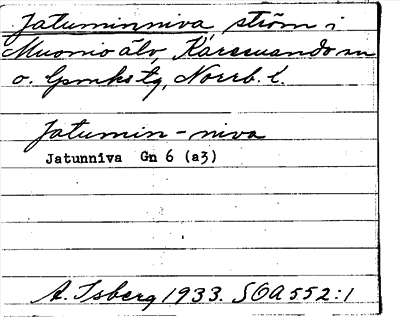 Jatuminniva ström i
Muonio älv, Karesuando sn
o. lpmks tg, Norrb. l.
Jatumin-niva
Jatunniva Gn 6 (a3)
A. Isberg 1933. SOA 552:1